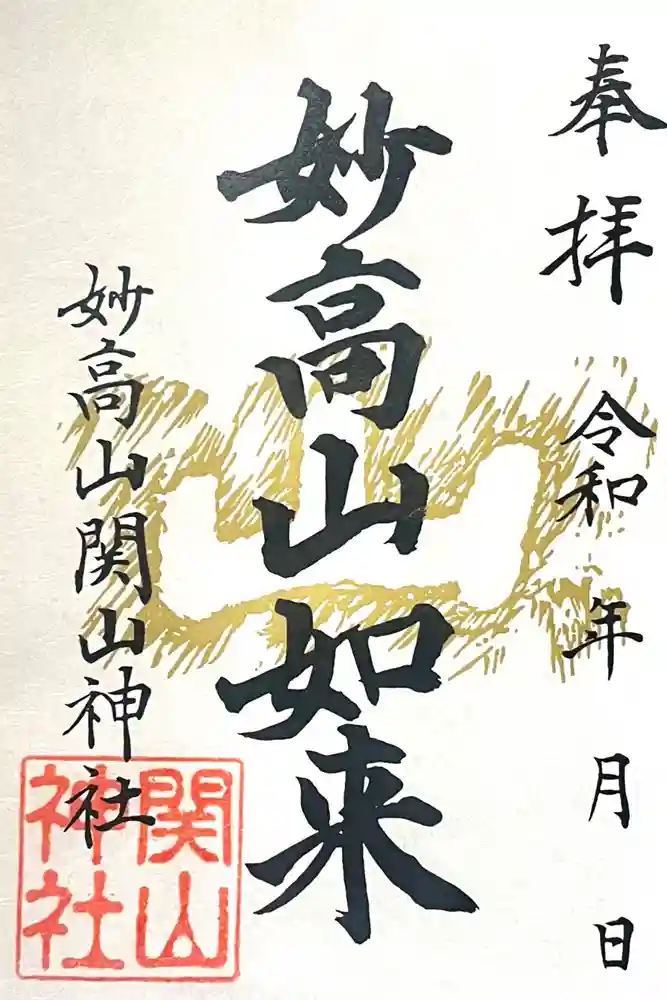 奉拝 令和 年 月 日
妙高山如来
妙高山関山神社
関山
神社
山